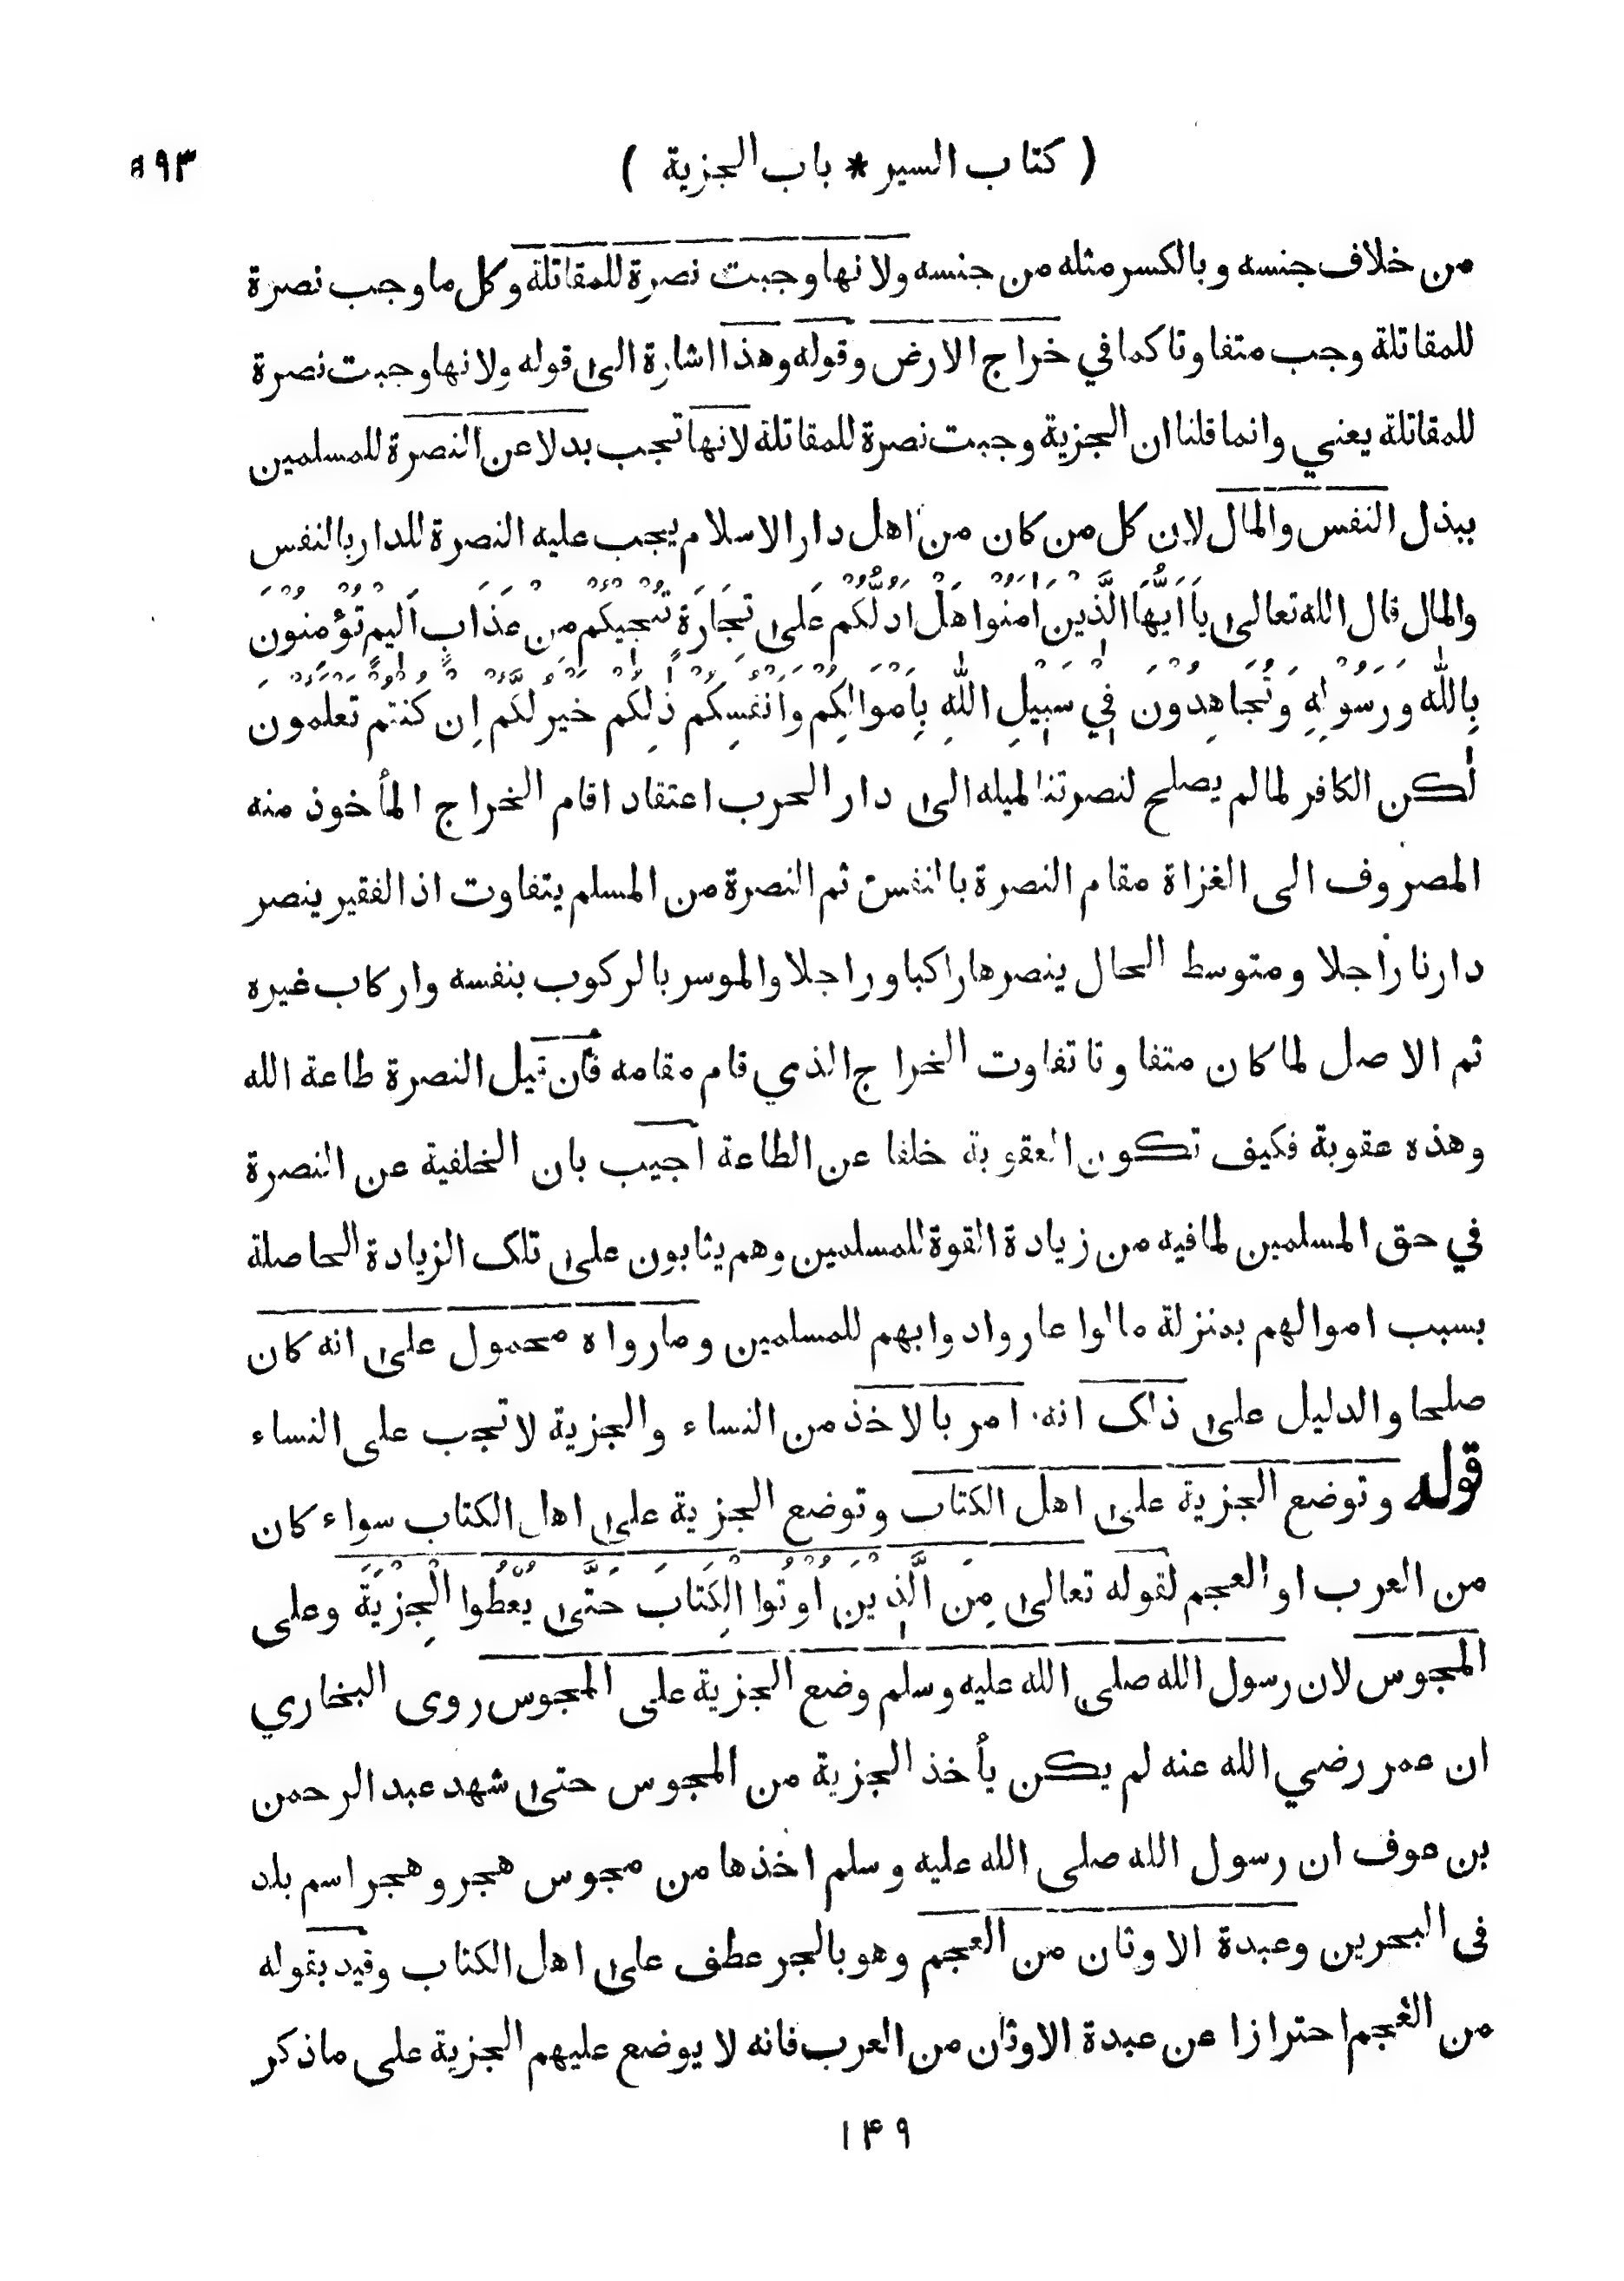 ( كتاب السير * باب الجزية ) ٥٩٣
من خلاف جنسه وبالكسر مثله من جنسه ولانها وجبت نصرة للمقاتلة وكل ما وجب نصرة
للمقاتلة وجب متفاوتا كما في خراج الارض وقوله وهذا اشارة الى قوله ولانها وجبت نصرة
للمقاتلة يعني وانما قلنا ان الجزية وجبت نصرة للمقاتلة لانها تجب بدلا عن النصرة للمسلمين
ببذل النفس والمال لان كل من كان من اهل دار الاسلام يجب عليه النصرة للدار بالنفس
والمال قال الله تعالى يَا اَيُّهَا الَّذِيْنَ اٰمَنُوْا هَلْ اَدُلُّكُمْ عَلٰى تِجَارَةٍ تُنْجِيْكُمْ مِنْ عَذَابٍ اَلِيْمٍ تُؤْمِنُوْنَ
بِاللّٰهِ وَرَسُوْلِهٖ وَتُجَاهِدُوْنَ فِيْ سَبِيْلِ اللّٰهِ بِاَمْوَالِكُمْ وَاَنْفُسِكُمْ ذٰلِكُمْ خَيْرٌ لَّكُمْ اِنْ كُنْتُمْ تَعْلَمُوْنَ
لكن الكافر لما لم يصلح لنصرتنا لميله الى دار الحرب اعتقاد اقام الخراج المأخوذ منه
المصروف الى الغزاة مقام النصرة بالنفس ثم النصرة من المسلم يتفاوت اذ الفقير ينصر
دارنا راجلا ومتوسط الحال ينصرها راكبا وراجلا والموسر بالركوب بنفسه واركاب غيره
ثم الاصل لما كان متفاوتا تفاوت الخراج الذي قام مقامه فان قيل النصرة طاعة الله
وهذه عقوبة فكيف تكون العقوبة خلفا عن الطاعة اجيب بان الخلفية عن النصرة
في حق المسلمين لما فيه من زيادة القوة للمسلمين وهم يثابون على تلك الزيادة الحاصلة
بسبب اموالهم بمنزلة مالوا عاروا دوابهم للمسلمين وما رواه محمول على انه كان
صلحا والدليل على ذلك انه امر بالاخذ من النساء والجزية لا تجب على النساء
قوله وتوضع الجزية على اهل الكتاب وتوضع الجزية على اهل الكتاب سواء كان
من العرب او العجم لقوله تعالى مِنَ الَّذِيْنَ اُوْتُوا الْكِتَابَ حَتّٰى يُعْطُوا الْجِزْيَةَ وعلى
المجوس لان رسول الله صلى الله عليه وسلم وضع الجزية على المجوس روى البخاري
ان عمر رضي الله عنه لم يكن يأخذ الجزية من المجوس حتى شهد عبد الرحمن
بن عوف ان رسول الله صلى الله عليه وسلم اخذها من مجوس هجر وهجر اسم بلد
فى البحرين وعبدة الاوثان من العجم وهو بالجر عطف على اهل الكتاب وقيد بقوله
من العجم احترازا عن عبدة الاوثان من العرب فانه لا يوضع عليهم الجزية على ما ذكر
١٤٩